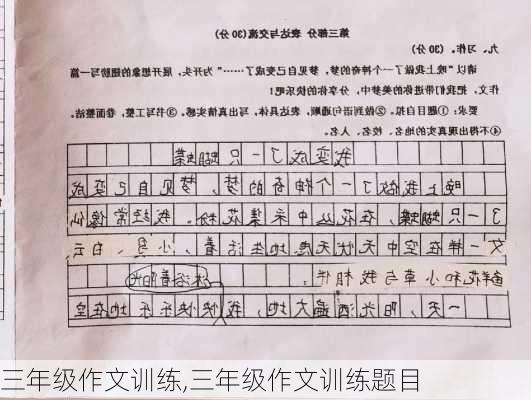 第三部分 表达与交流(30 分)
九、习作。(30 分)
请以“晚上我做了一个神奇的梦,梦见自己变成了……”为开头,展开想象的翅膀写一篇
作文,把我们带进你的美梦中,分享你的快乐吧!
要求:①题目自拟。②做到语句通顺,具体表达,写出真情实感。③书写工整,卷面整洁。
④不得出现真实的地名、校名、人名。
我变成了一只蝴蝶
晚上我做了一个神奇的梦,梦见自己变成
了一只蝴蝶,在花丛中采集花粉。我经常像仙
女一样在空中无忧无虑地生活着,小鸟、白云、
鲜花和小草与我相伴。 沐浴着阳光
一天,阳光洒遍大地,我快快乐乐地在空
三年级作文训练,三年级作文训练题目